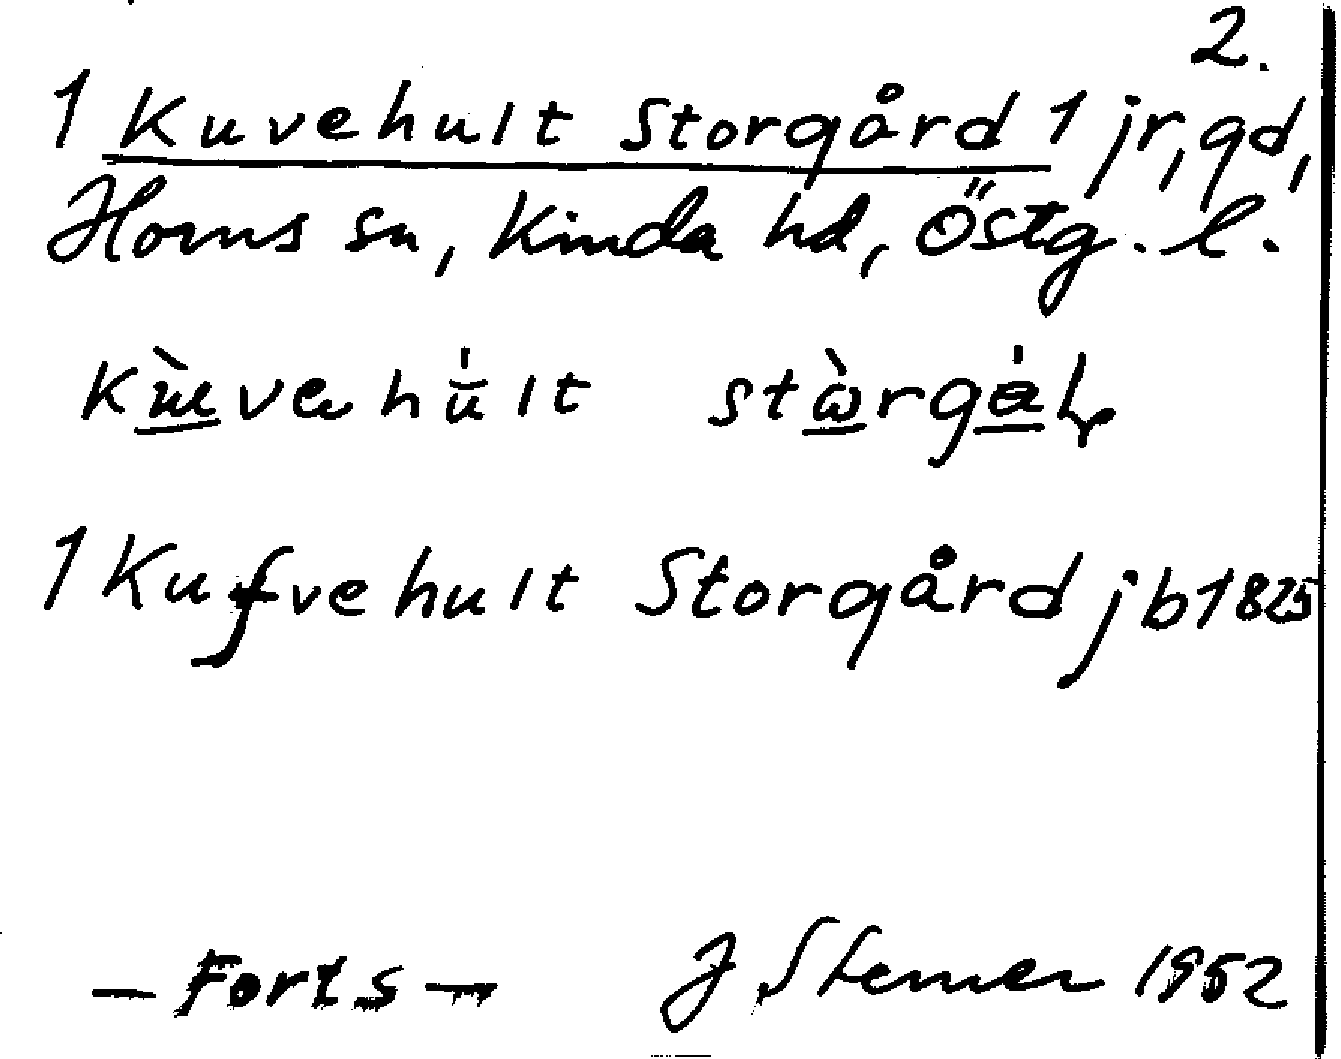 2.
1 Kuvehult Storgård 1 jr, gd,
Horns sn, Kinda hd, Östg. l.
1 Kufvehult Storgård jb 1825
– Forts – J Sterner 1952